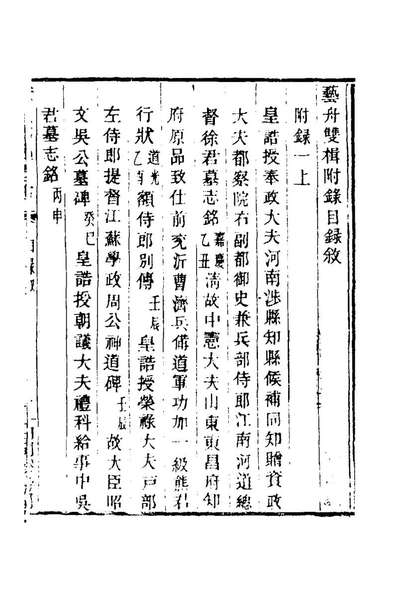 藝舟雙楫附錄目錄敘
附錄一上
皇誥授奉政大夫河南涉縣知縣候補同知贈資政
大夫都察院右副都御史兼兵部侍郎江南河道總
督徐君墓志銘嘉慶乙丑 淸故中憲大夫山東東昌府知
府原品致仕前兖沂曹濟兵備道軍功加一級熊君
行狀道光乙 額侍郎別傳壬辰 皇誥授榮祿大夫戸部
左侍郎提督江蘇學政周公神道碑壬辰 故大臣昭
文吳公墓碑癸巳 皇誥授朝議大夫禮科給事中吳
君墓志銘丙申